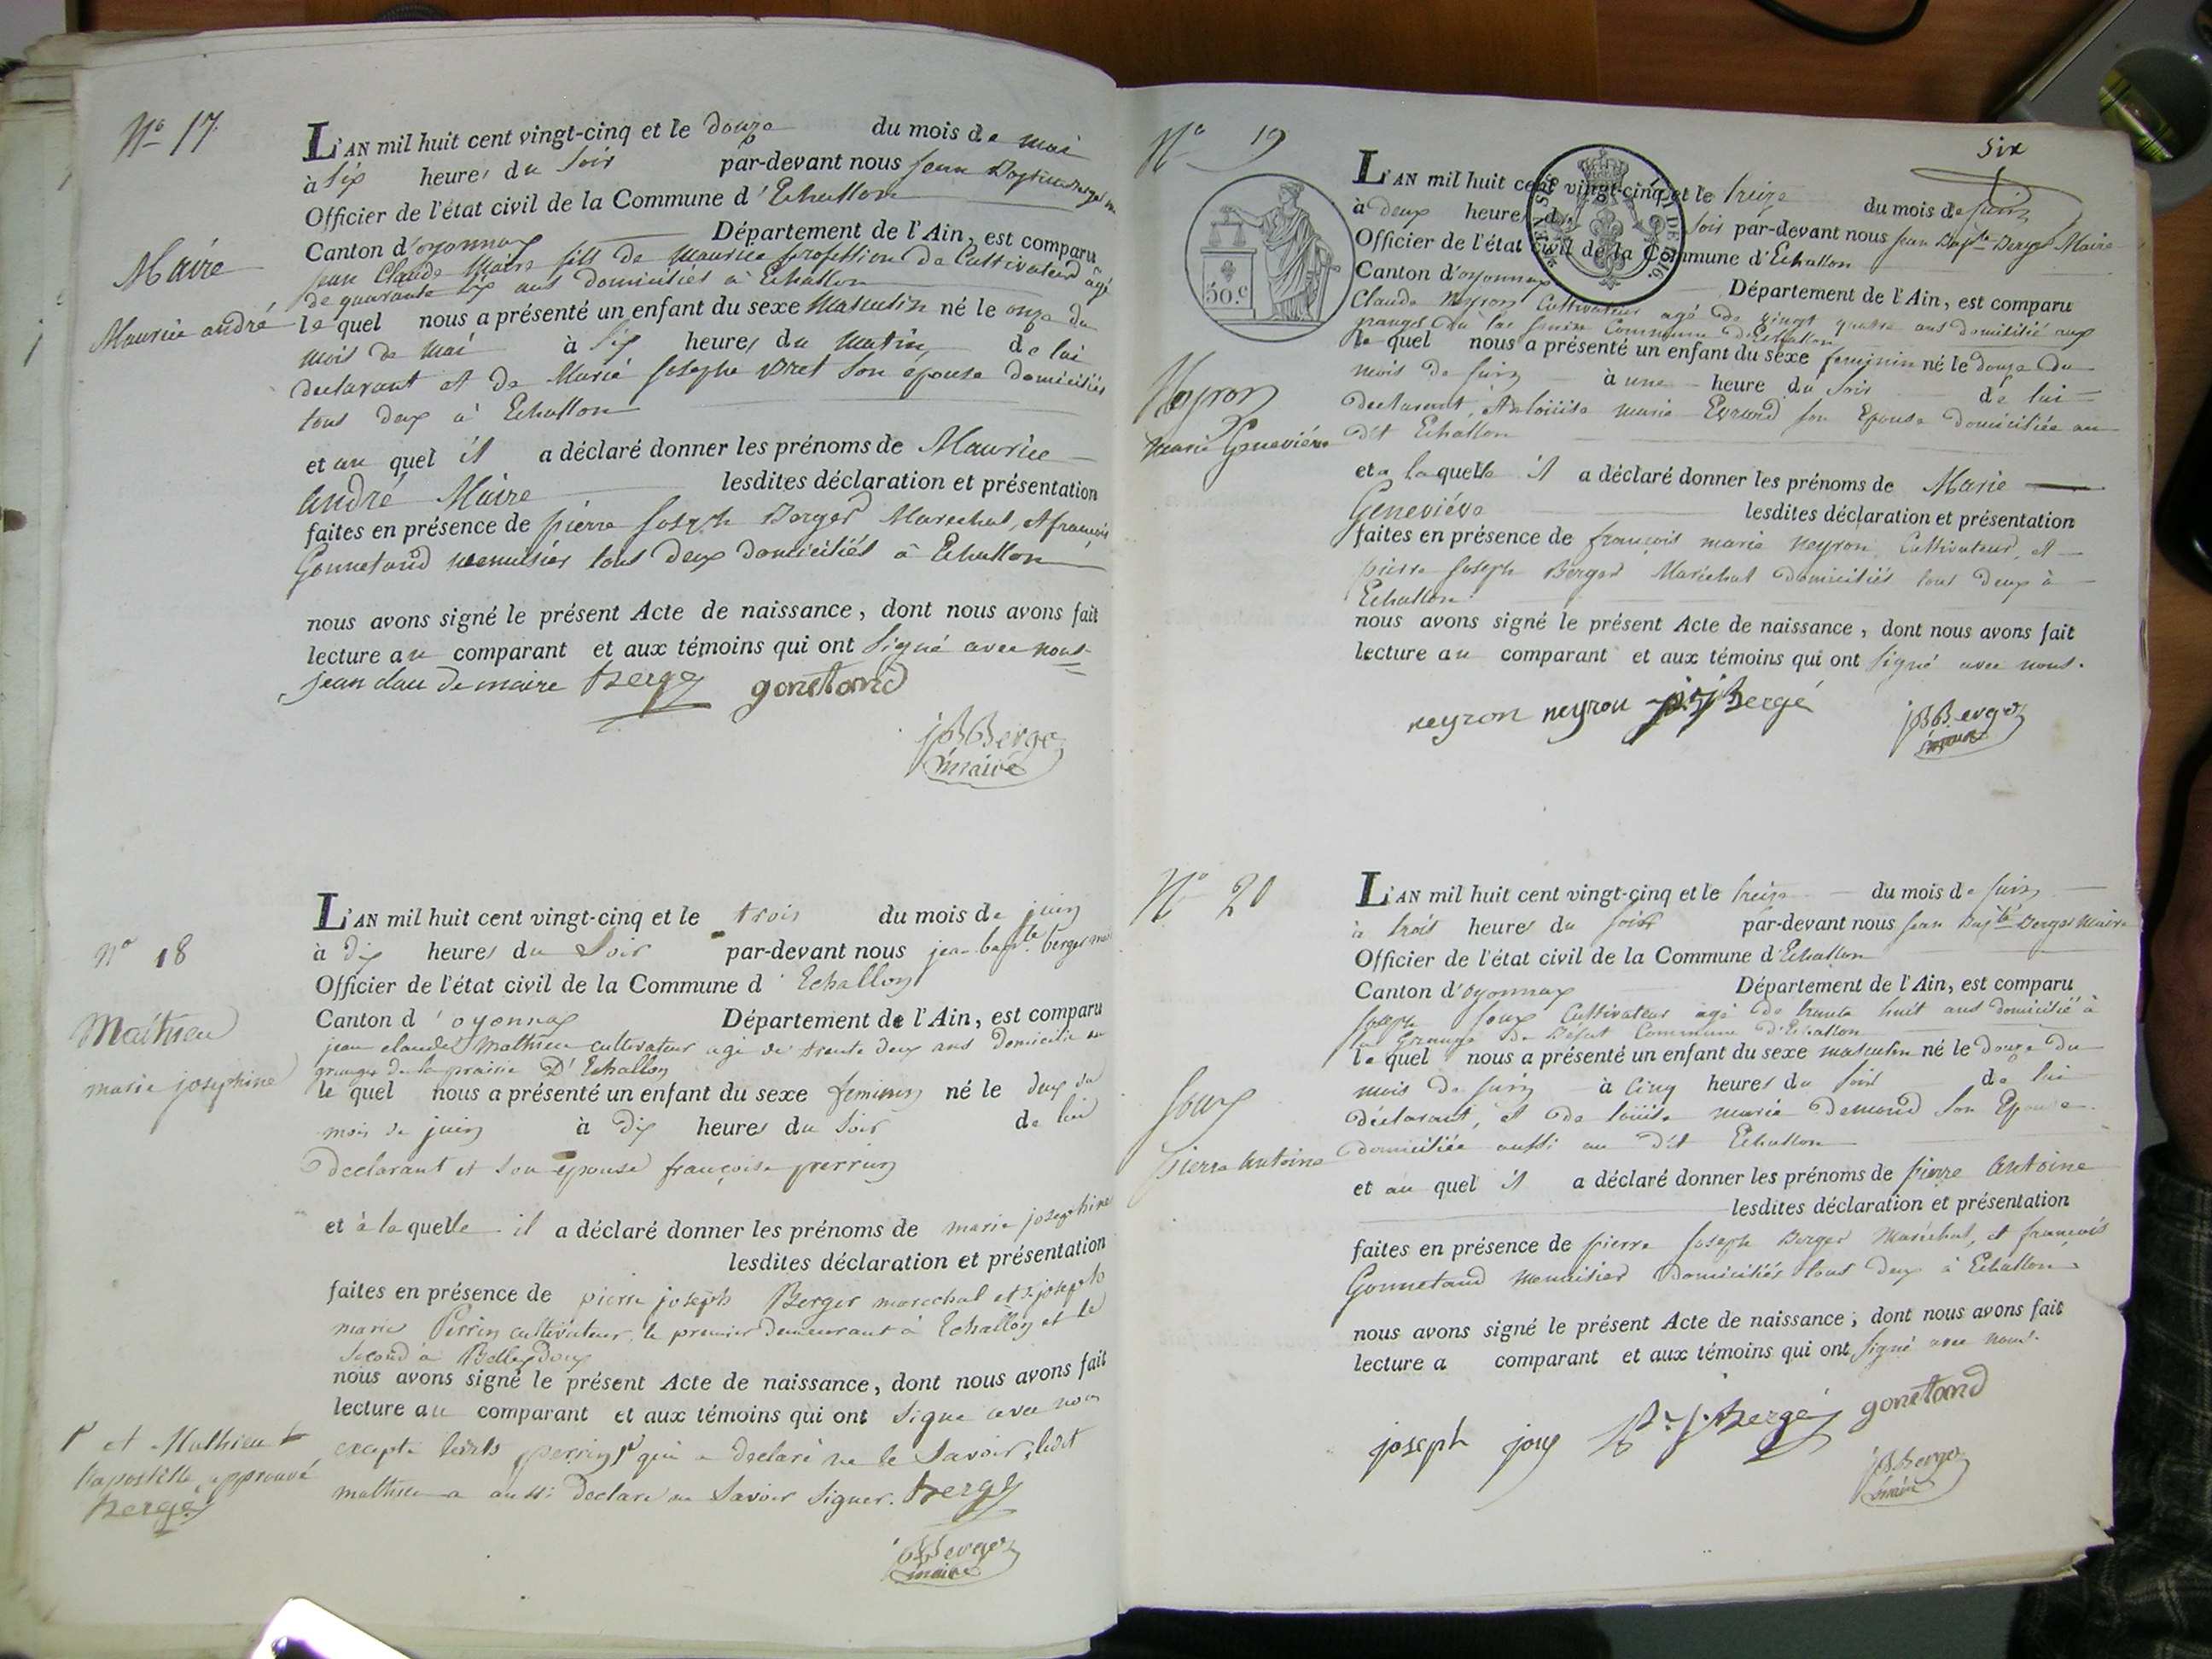 N° 17
L'AN mil huit cent vingt-cinq et le douze du mois de mai
à six heures du soir par-devant nous jean Baptiste Berger
Officier de l'état civil de la Commune d'Echallon
Canton d'oyonnax Département de l'Ain, est comparu
jean Claude Maire fils de Maurice profession de Cultivateur agé
de quarante six ans domiciliés à Echallon
Maire
Maurice andré
le quel nous a présenté un enfant du sexe Masculin né le onze du
mois de mai à six heures du matin de lui
declarant et de Marie josephe Vret son épouse domiciliés
tous deux à Echallon
et au quel il a déclaré donner les prénoms de Maurice
andré Maire lesdites déclaration et présentation
faites en présence de pierre joseph Berger Marechal, et françois
Gonnetand menuisier tous deux domiciliés à Echallon
nous avons signé le présent Acte de naissance, dont nous avons fait
lecture au comparant et aux témoins qui ont signé avec nous
jean clau de maire Berge gonetand
JB Berge
maire
N° 18
L'AN mil huit cent vingt-cinq et le trois du mois de juin
à dix heures du soir par-devant nous jean bapte. berger
Officier de l'état civil de la Commune d'Echallon
Canton d'oyonnax Département de l'Ain, est comparu
jean claude Mathieu cultivateur agé de trente deux ans domicilié au
granges de la prairie D'Echallon
Mathieu
marie josephine
le quel nous a présenté un enfant du sexe feminin né le deux du
mois de juin à dix heures du soir de lui
declarant et son epouse françoise perrin
et à la quelle il a déclaré donner les prénoms de marie josephine
lesdites déclaration et présentation
faites en présence de pierre joseph Berger marechal et joseph
marie Perrin cultivateur, le premier demeurant à Echallon et le
second à Belleydoux
nous avons signé le présent Acte de naissance, dont nous avons fait
lecture au comparant et aux témoins qui ont signé avec nous
excepté ledit perrin qui a declaré ne le savoir, ledit
mathieu a aussi declaré ne savoir signer. Berge
et Mathieu
l'apostille approuvé
Berge
JB Berge
maire
six
N° 19
50.c
L'AN mil huit cent vingt-cinq et le treize du mois de juin
à deux heures du soir par-devant nous jean Bapte Berger Maire
Officier de l'état civil de la Commune d'Echallon
Canton d'oyonnax Département de l'Ain, est comparu
Claude Neyron Cultivateur agé de vingt quatre ans domicilié aux
granges du lac Commune d'Echallon
le quel nous a présenté un enfant du sexe feminin né le douze du
mois de juin à une heure du soir de lui
Neyron
marie Geneviéve
declarant, et de louise marie Evrard son Epouse domiciliée au
dit Echallon
et a laquelle il a déclaré donner les prénoms de Marie
Geneviéve lesdites déclaration et présentation
faites en présence de françois marie neyron Cultivateur, et
pierre joseph Berger Maréchal domiciliés tous deux à
Echallon
nous avons signé le présent Acte de naissance, dont nous avons fait
lecture au comparant et aux témoins qui ont signé avec nous.
neyron neyron pj Bergé
JB Berge
maire
N° 20
L'AN mil huit cent vingt-cinq et le treize du mois de juin
à trois heures du soir par-devant nous jean Bapte Berger Maire
Officier de l'état civil de la Commune d'Echallon
Canton d'oyonnax Département de l'Ain, est comparu
joseph joux Cultivateur agé de trente huit ans domicilié à
la Grange Commune d'Echallon
le quel nous a présenté un enfant du sexe masculin né le douze du
mois de juin à cinq heures du soir de lui
Joux
pierre Antoine
déclarant, et de louise marie Demond son Epouse
domiciliée aussi au dit Echallon
et au quel il a déclaré donner les prénoms de pierre Antoine
lesdites déclaration et présentation
faites en présence de pierre joseph Berger Maréchal, et françois
Gonnetand Menuisier domiciliés tous deux à Echallon
nous avons signé le présent Acte de naissance; dont nous avons fait
lecture a comparant et aux témoins qui ont signé avec nous.
joseph joux Pr J. Bergé gonetand
JB Berge
maire